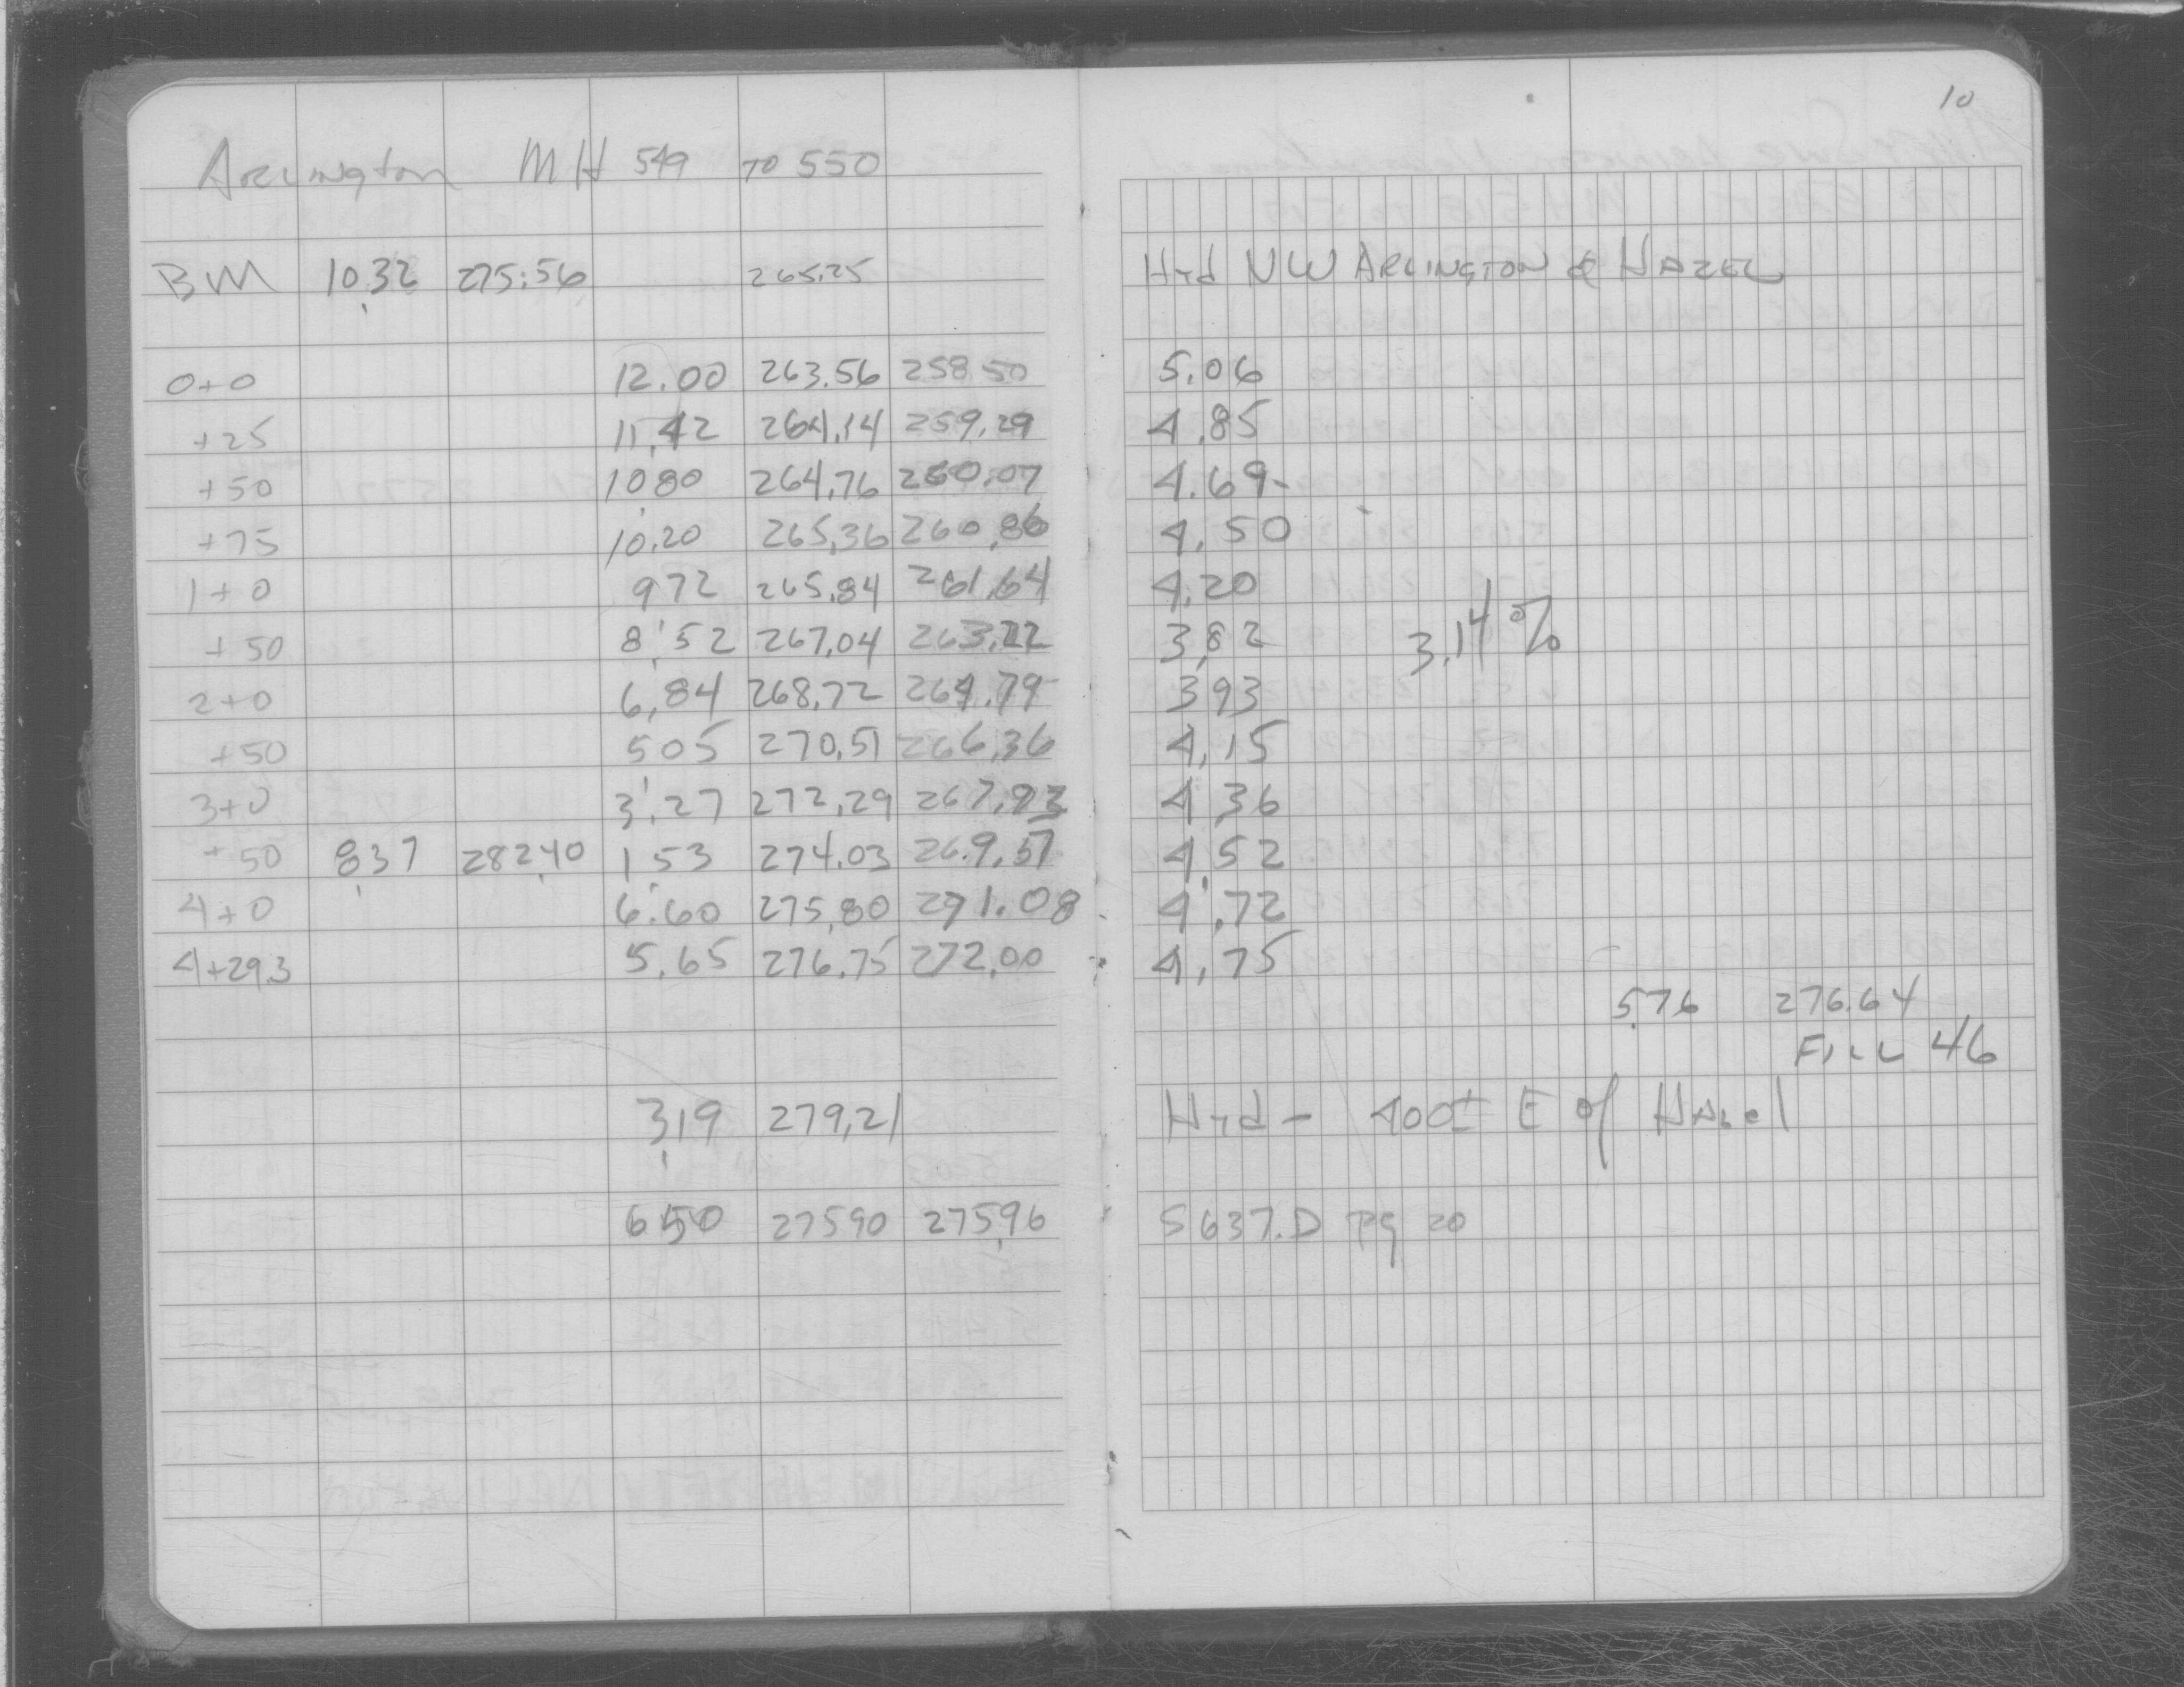 10
Arlington MH 549 TO 550
BM 10.32 275.56 265.25 Hyd NW ARLINGTON & HAZEL
0+0 12.00 263.56 258.50 5.06
+25 11.42 264.14 259.29 4.85
+50 10.80 264.76 260.07 4.69
+75 10.20 265.36 260.86 4.50
1+0 9.72 265.84 261.64 4.20
+50 8.52 267.04 263.22 3.82 3.14%
2+0 6.84 268.72 264.79 3.93
+50 5.05 270.51 266.36 4.15
3+0 3.27 272.29 267.93 4.36
+50 8.37 282.40 1.53 274.03 269.51 4.52
4+0 6.60 275.80 271.08 4.72
4+29.3 5.65 276.75 272.00 4.75
5.76 276.64
FILL 46
3.19 279.21 Hyd - 400± E of Hazel
6.50 275.90 275.96 S 637.D pg 20